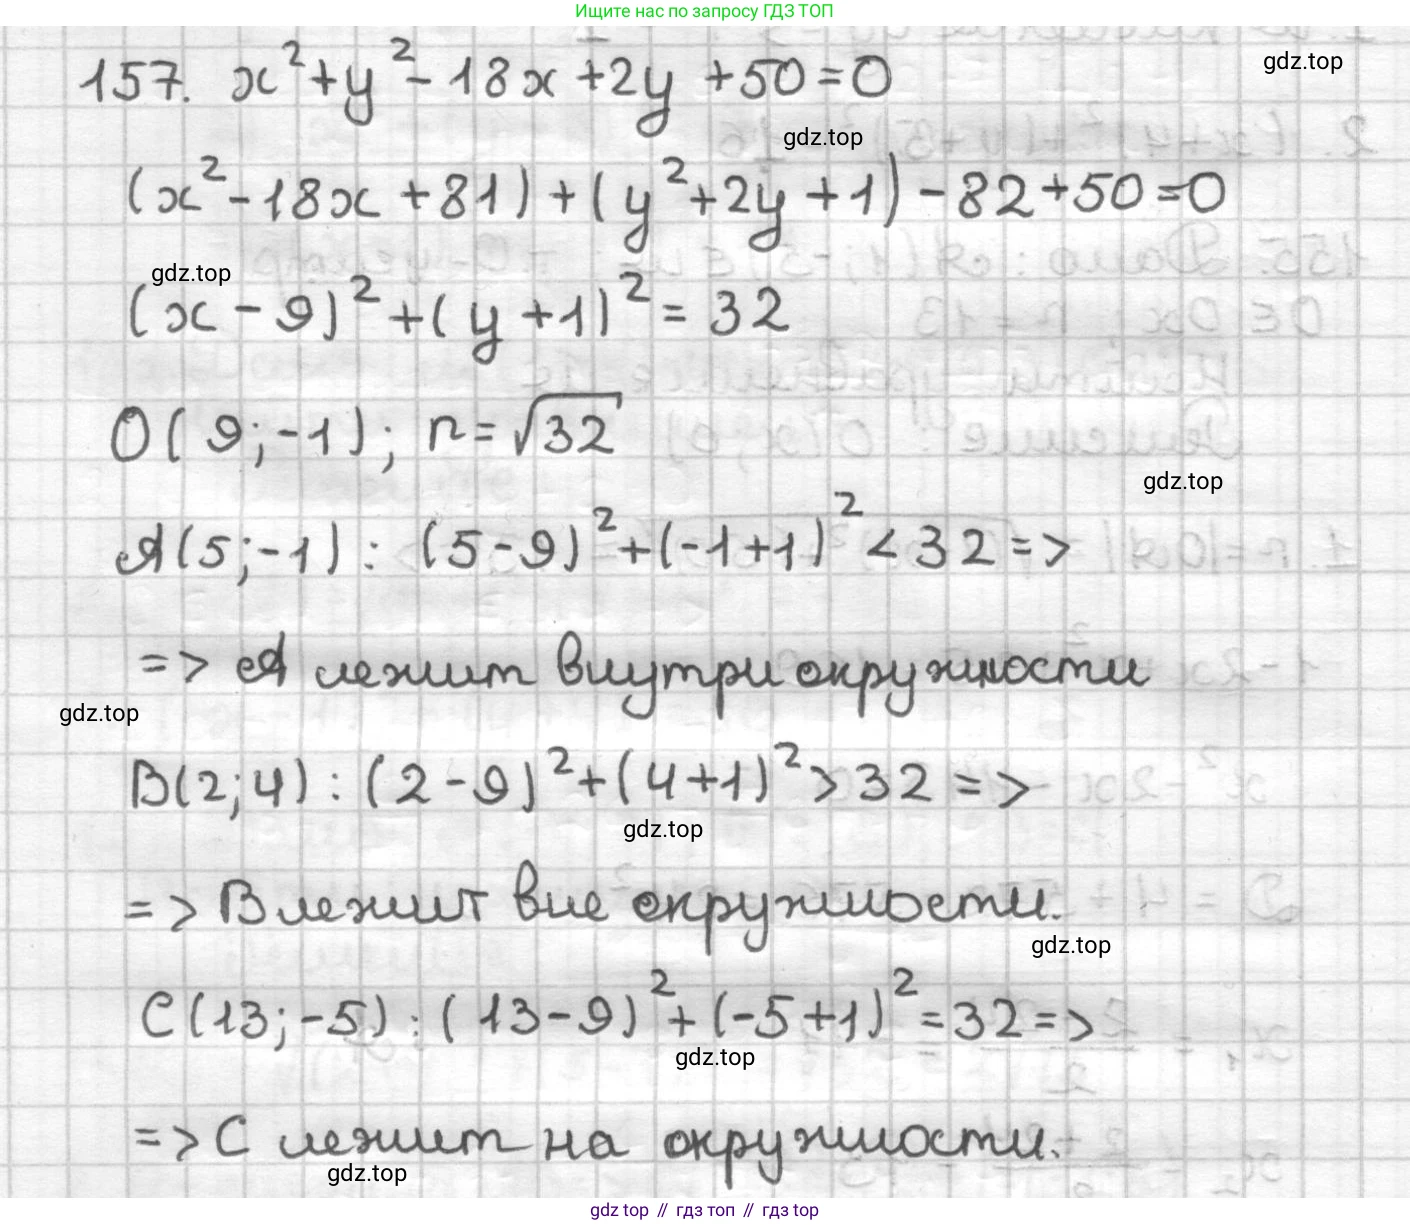 Ищите нас по запросу ГДЗ ТОП
157. x²+y²-18x+2y+50=0
gdz.top
gdz.top
(x²-18x+81)+(y²+2y+1)-82+50=0
gdz.top
(x-9)²+(y+1)²=32
O(9;-1); r=√32
gdz.top
A(5;-1): (5-9)²+(-1+1)²<32=>
=> A лежит внутри окружности
gdz.top
B(2;4): (2-9)²+(4+1)²>32=>
gdz.top
=> B лежит вне окружности.
gdz.top
C(13;-5): (13-9)²+(-5+1)²=32=>
gdz.top
=> C лежит на окружности.
gdz.top
gdz top // гдз топ // gdz top